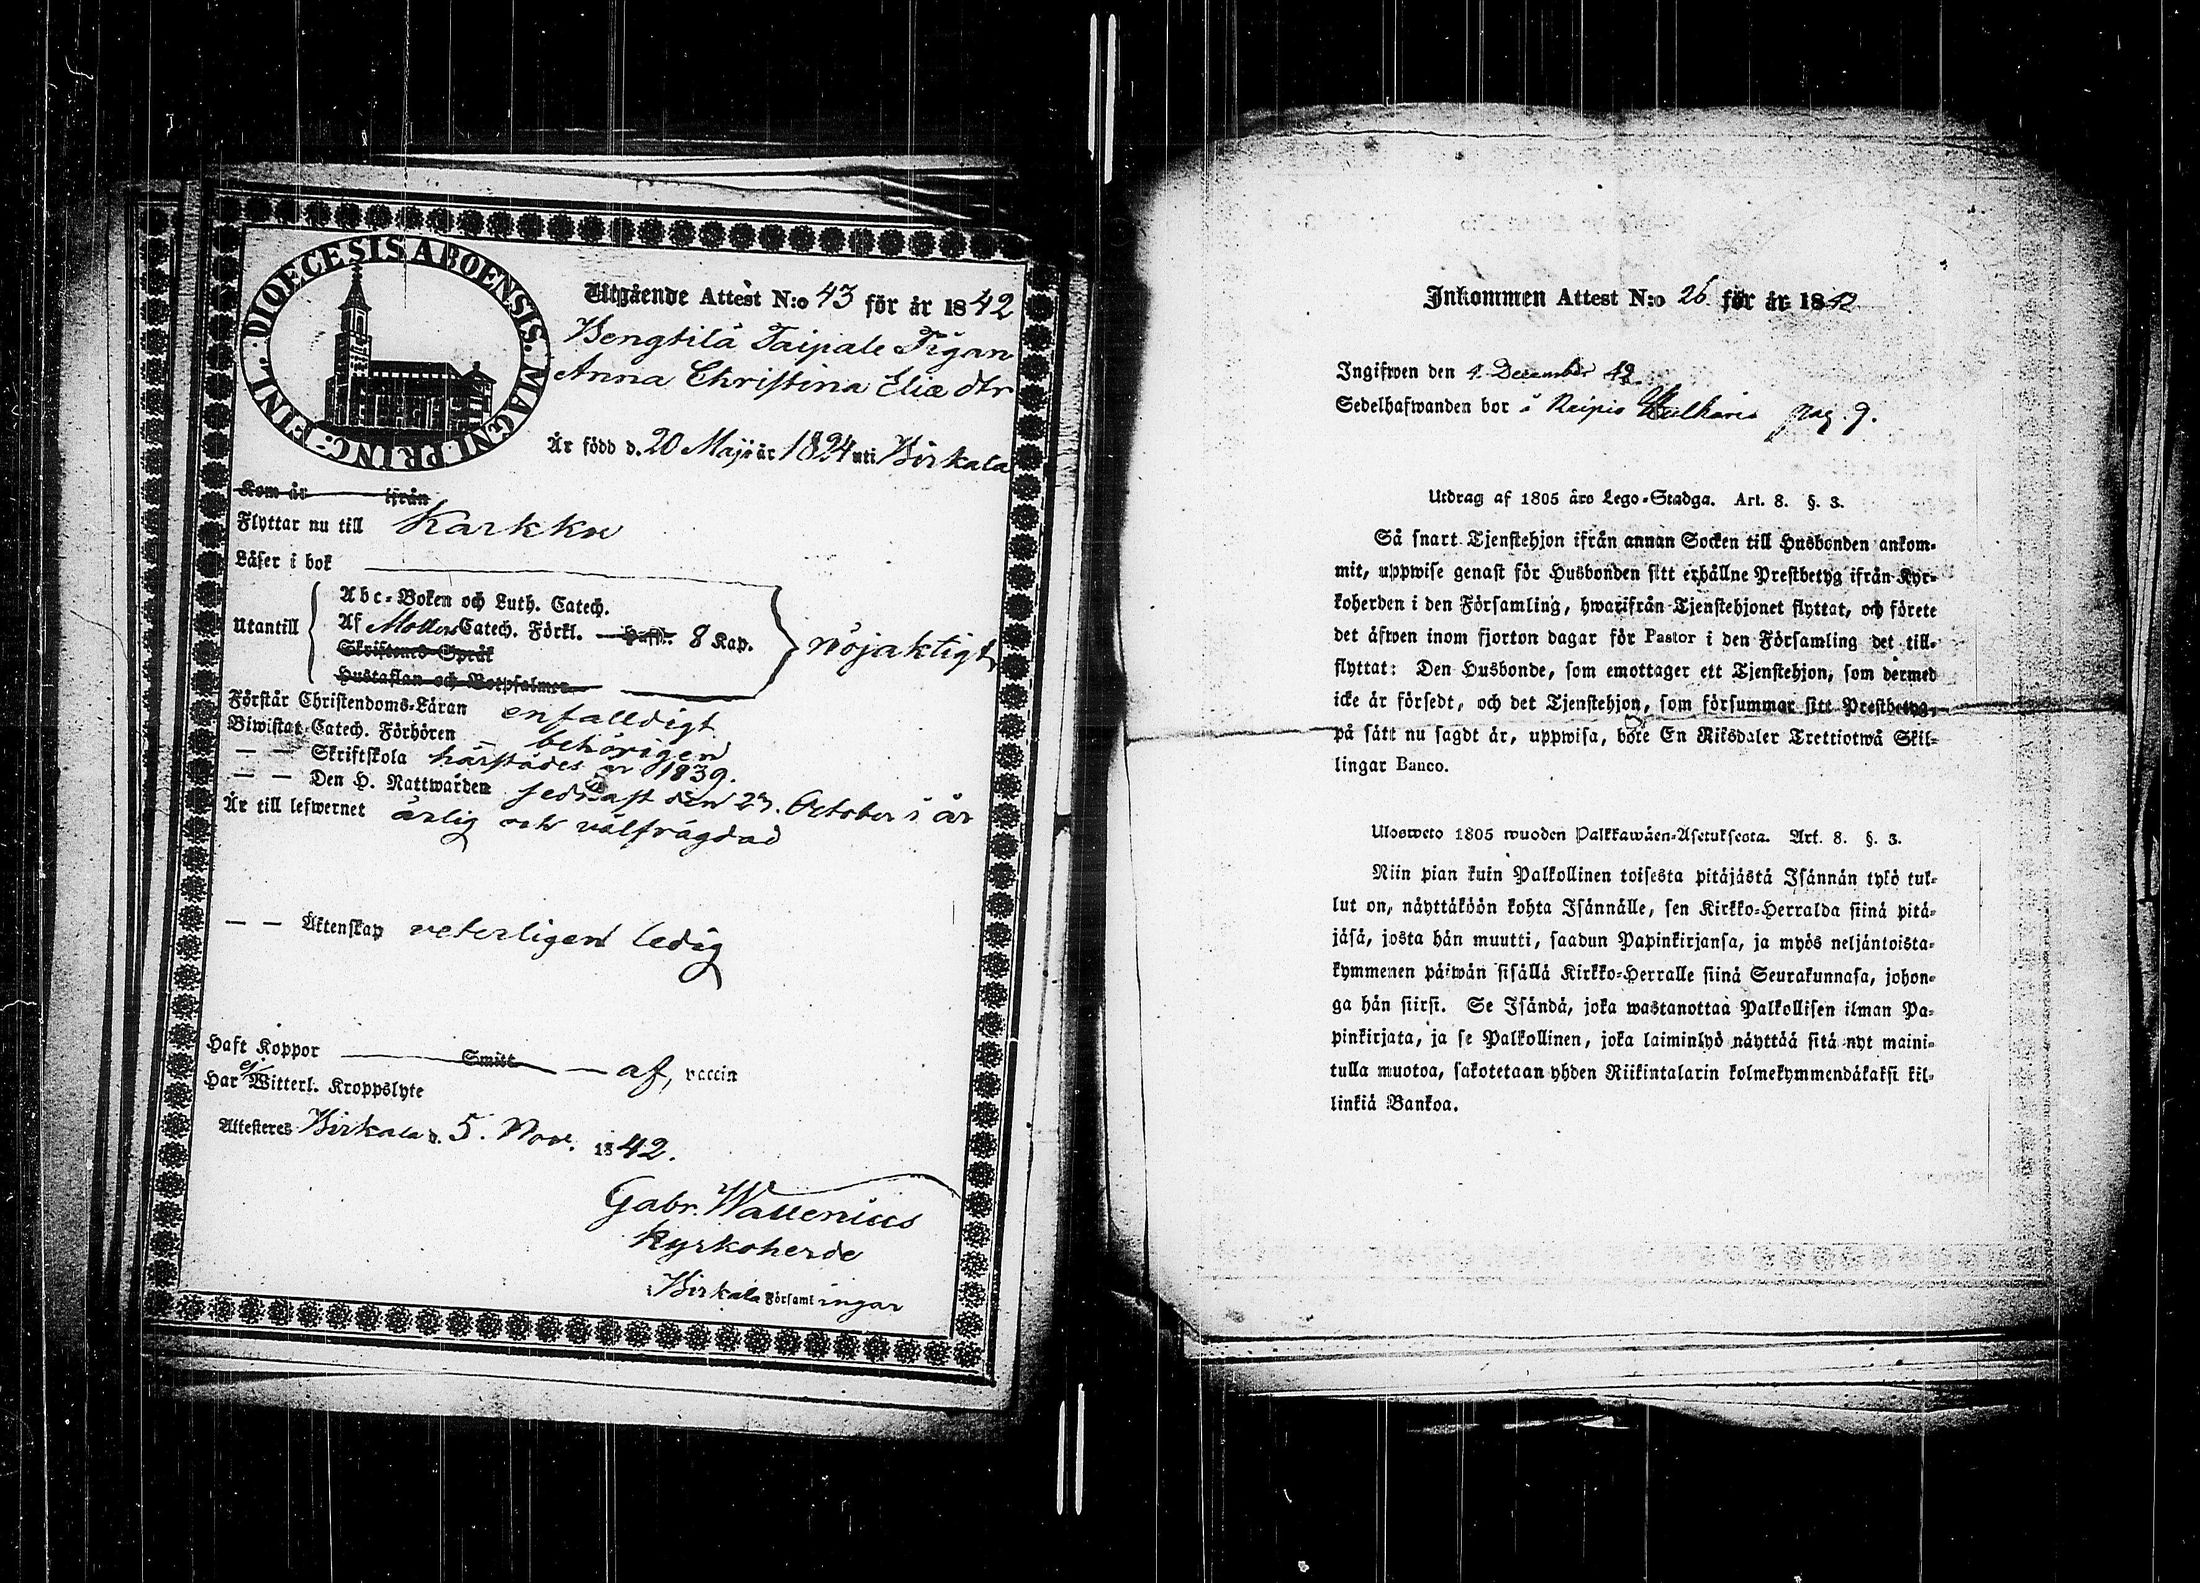 DIOECESIS ABOENSIS. MAGNI PRINC. FINL.
Utgående Attest N:o 43 för år 1842
Bengtilä Taipale Pigan
Anna Christina Eliæ dtr
Är född d. 20 Maji år 1824 uti Birkala
Kom år ifrån
Flyttar nu till Karkku
Läser i bok
Utantill
Abc-Boken och Luth. Catech.
Af Mollers Catech. Förkl. 8 Kap.
nöjaktigt
Skriftenes Språk
Hustaflan och Botpsalmer
Förstår Christendoms-Läran enfalldigt
Biwistat Catech. Förhören behörigen
— — Skriftskola härstädes år 1839.
— — Den H. Nattwarden sednast den 23. October i år
Är till lefwernet ärlig och välfrägdad
— — Äktenskap veterligen ledig
Haft Koppor Smitt — af, vaccin
Har ej Witterl. Kroppslyte
Attesteres Birkala d. 5. Nov. 1842.
Gabr. Wallenius
Kyrkoherde
Birkala Församlingar
Inkommen Attest N:o 26 för år 1842
Ingifwen den 4. December 42
Sedelhafwanden bor å Reipis pag. 9.
Utdrag af 1805 års Lego-Stadga. Art. 8. §. 3.
Så snart Tjenstehjon ifrån annan Socken till Husbonden ankom-
mit, uppwise genast för Husbonden sitt erhållne Prestbetyg ifrån Kyr-
koherden i den Församling, hwarifrån Tjenstehjonet flyttat, och förete
det äfwen inom fjorton dagar för Pastor i den Församling det till-
flyttat: Den Husbonde, som emottager ett Tjenstehjon, som dermed
icke är försedt, och det Tjenstehjon, som försummar sitt Prestbetyg,
på sätt nu sagdt är, uppwisa, böte En Riksdaler Trettiotwå Skil-
lingar Banco.
Ulosweto 1805 wuoden Palkkawäen-Asetuksesta. Art. 8. §. 3.
Niin pian kuin Palkollinen toisesta pitäjästä Isännän tykö tul-
lut on, näyttäköön kohta Isännälle, sen Kirkko-Herralda siinä pitä-
jäsä, josta hän muutti, saadun Papinkirjansa, ja myös neljäntoista-
kymmenen päiwän sisällä Kirkko-Herralle siinä Seurakunnasa, johon-
ga hän siirsi. Se Isändä, joka wastanottaa Palkollisen ilman Pa-
pinkirjata, ja se Palkollinen, joka laiminlyö näyttää sitä nyt maini-
tulla muotoa, sakotetaan yhden Riikintalarin kolmekymmendäkaksi kil-
linkiä Bankoa.